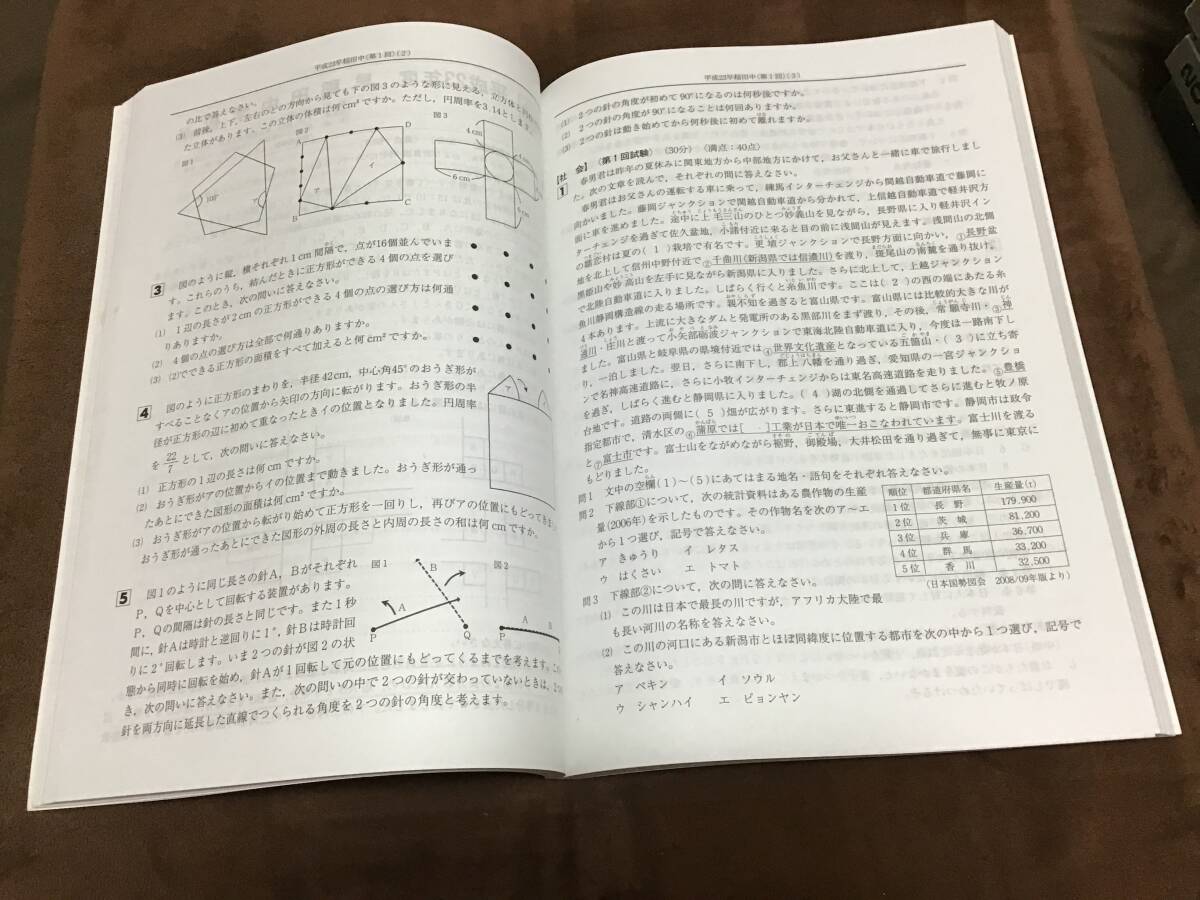 平成23早稲田中〈第1回〉(2)
の比で答えなさい。
(3) 前後，上下，左右のどの方向から見ても下の図3のような形に見える，立方体と円柱
た立体があります。この立体の体積は何cm³ですか。ただし，円周率を3.14とします。
図1
図2
図3
108°
A
D
B
C
ア
イ
4cm
6cm
3 図のように縦，横それぞれ1cm間隔で，点が16個並んでいま
す。これらのうち，結んだときに正方形ができる4個の点を選び
ます。このとき，次の問いに答えなさい。
(1) 1辺の長さが2cmの正方形ができる4個の点の選び方は何通
りありますか。
(2) 4個の点の選び方は全部で何通りありますか。
(3) (2)でできる正方形の面積をすべて加えると何cm²ですか。
4 図のように正方形のまわりを，半径42cm，中心角45°のおうぎ形が
すべることなくアの位置から矢印の方向に転がります。おうぎ形の半
径が正方形の辺に初めて重なったときイの位置となりました。円周率
を22/7として，次の問いに答えなさい。
(1) 正方形の1辺の長さは何cmですか。
(2) おうぎ形がアの位置からイの位置まで動きました。おうぎ形が通っ
たあとにできた図形の面積は何cm²ですか。
(3) おうぎ形がアの位置から転がり始めて正方形を一回りし，再びアの位置にもどってきま
おうぎ形が通ったあとにできた図形の外周の長さと内周の長さの和は何cmですか。
ア
5 図1のように同じ長さの針A，Bがそれぞれ
P，Qを中心として回転する装置があります。
P，Qの間隔は針の長さと同じです。また1秒
間に，針Aは時計と逆回りに1°，針Bは時計回
りに2°回転します。いま2つの針が図2の状
態から同時に回転を始め，針Aが1回転して元の位置にもどってくるまでを考えます。この
き，次の問いに答えなさい。また，次の問いの中で2つの針が交わっていないときは，2つ
針を両方向に延長した直線でつくられる角度を2つの針の角度と考えます。
図1
図2
A
B
P
Q
P
A
B
平成23早稲田中〈第1回〉(3)
(1) 2つの針の角度が初めて90°になるのは何秒後ですか。
(2) 2つの針の角度が90°になることは何回ありますか。
(3) 2つの針は動き始めてから何秒後に初めて離れますか。
【社 会】〈第1回試験〉(30分)〈満点：40点〉
1 春男君は昨年の夏休みに関東地方から中部地方にかけて，お父さんと一緒に車で旅行しまし
た。次の文章を読んで，それぞれの問に答えなさい。
春男君はお父さんの運転する車に乗って，練馬インターチェンジから関越自動車道で藤岡に
向かいました。藤岡ジャンクションで関越自動車道から分かれて，上信越自動車道で軽井沢方
面に車を進めました。途中に上毛三山のひとつ妙義山を見ながら，長野県に入り軽井沢イン
ターチェンジを過ぎて佐久盆地，小諸付近に来ると目の前に浅間山が見えます。浅間山の北側
の嬬恋村は夏の（1）栽培で有名です。更埴ジャンクションで長野方面に向かい，①長野盆
地を北上して信州中野付近で②千曲川(新潟県では信濃川)を渡り，斑尾山の南麓を通り抜け，
黒姫山や妙高山を左手に見ながら新潟県に入りました。さらに北上して，上越ジャンクション
で北陸自動車道に入りました。しばらく行くと糸魚川です。ここは（2）の西の端にあたる糸
魚川静岡構造線の走る場所です。親不知を過ぎると富山県です。富山県には比較的大きな川が
4本あります。上流に大きなダムと発電所のある黒部川をまず渡り，その後，常願寺川・③神
通川・庄川と渡って小矢部砺波ジャンクションで東海北陸自動車道に入り，今度は一路南下し
ました。富山県と岐阜県の県境付近では④世界文化遺産となっている五箇山・（3）に立ち寄
り，一泊しました。翌日，さらに南下し，郡上八幡を通り過ぎ，愛知県の一宮ジャンクショ
ンで名神高速道路に，さらに小牧インターチェンジからは東名高速道路を走りました。⑤豊橋
を過ぎ，しばらく進むと静岡県に入りました。（4）湖の北側を通過してさらに進むと牧ノ原
台地です。道路の両側に（5）畑が広がります。さらに東進すると静岡市です。静岡市は政令
指定都市で，清水区の⑥蒲原では[ ]工業が日本で唯一おこなわれています。富士川を渡る
と⑦富士市です。富士山をながめながら裾野，御殿場，大井松田を通り過ぎて，無事に東京に
もどりました。
問1 文中の空欄(1)～(5)にあてはまる地名・語句をそれぞれ答えなさい。
問2 下線部①について，次の統計資料はある農作物の生産
量(2006年)を示したものです。その作物名を次のア～エ
から1つ選び，記号で答えなさい。
ア きゅうり イ レタス
ウ はくさい エ トマト
順位 都道府県名 生産量(t)
1位 長 野 179,900
2位 茨 城 81,200
3位 兵 庫 36,700
4位 群 馬 33,200
5位 香 川 32,500
(日本国勢図会 2008/09年版より)
問3 下線部②について，次の問に答えなさい。
(1) この川は日本で最長の川ですが，アフリカ大陸で最
も長い河川の名称を答えなさい。
(2) この川の河口にある新潟市とほぼ同緯度に位置する都市を次の中から1つ選び，記号で
答えなさい。
ア ペキン イ ソウル
ウ シャンハイ エ ピョンヤン